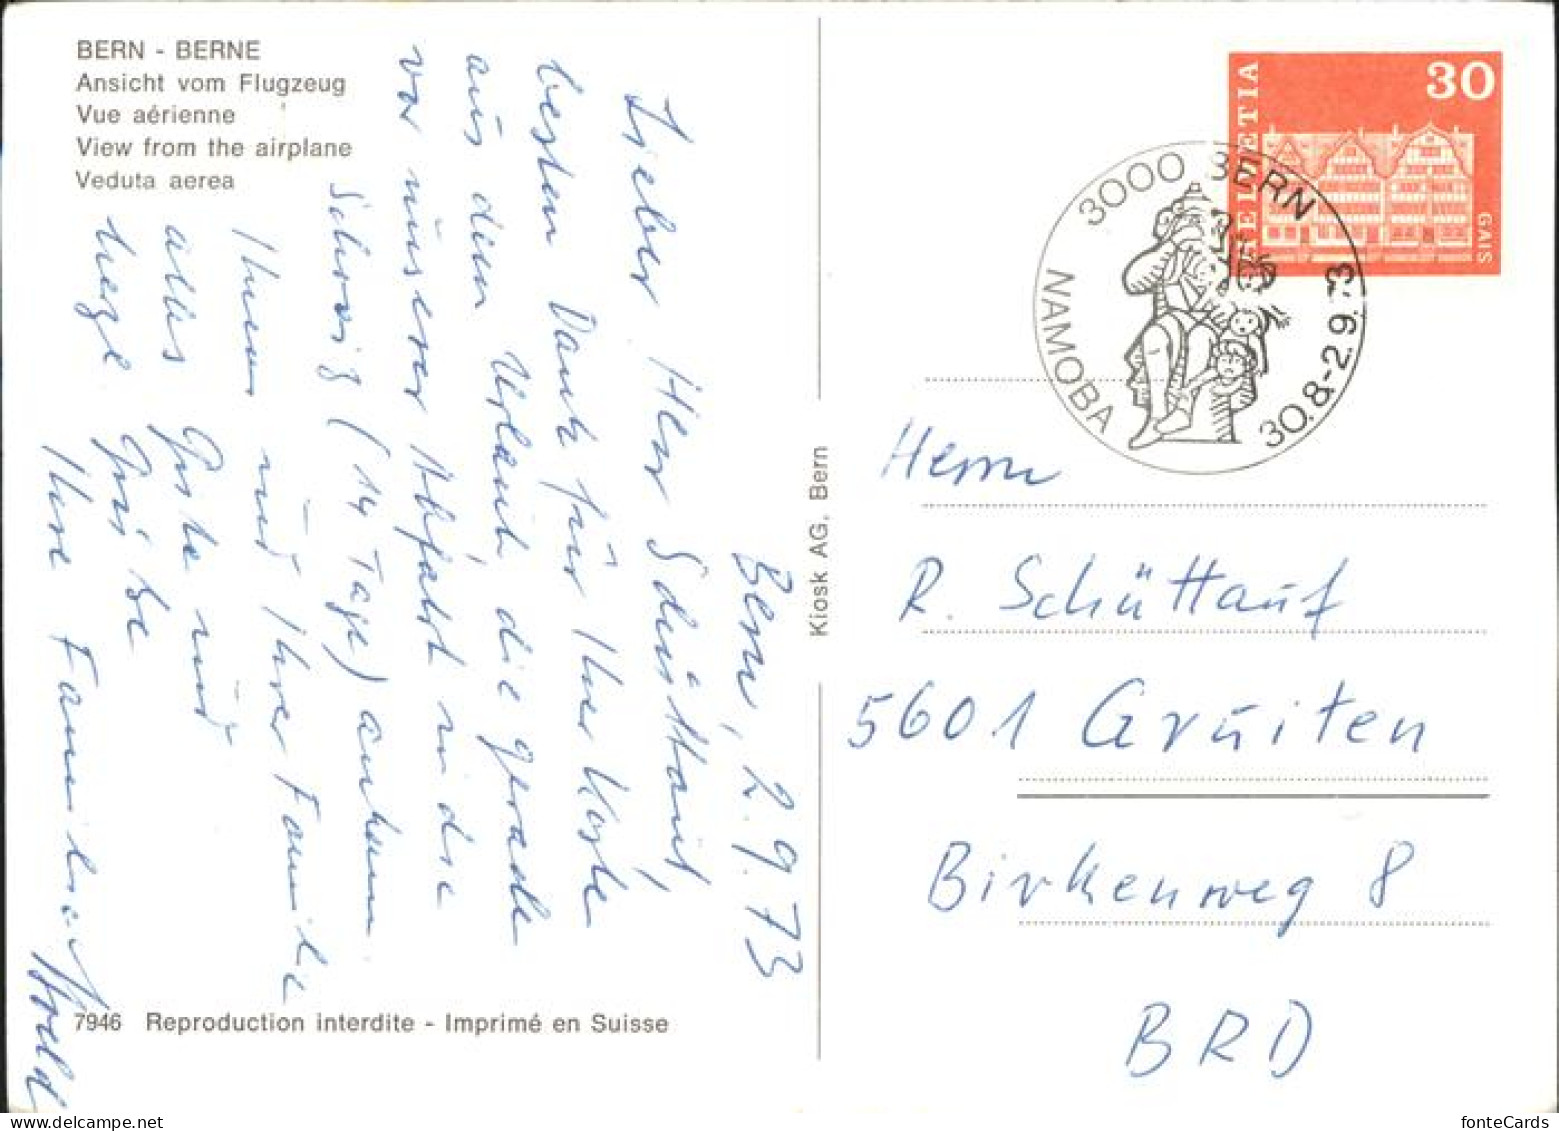 BERN - BERNE
Ansicht vom Flugzeug
Vue aérienne
View from the airplane
Veduta aerea
Bern, 2.9.73
Lieber Herr Schüttauf,
besten Dank für Ihre Karte
aus dem Urlaub, die gerade
vor unserer Abfahrt in die
Schweiz (14 Tage) ankam.
Ihnen und Ihrer Familie
alles Gute und
herzl. Grüße
Ihre Familie
7946 Reproduction interdite - Imprimé en Suisse
Kiosk AG, Bern
HELVETIA
30
GAIS
3000 BERN
NAMOBA
30.8.-2.9.73
Herrn
R. Schüttauf
5601 Gruiten
Birkenweg 8
BRD
fonteCards
www.delcampe.net